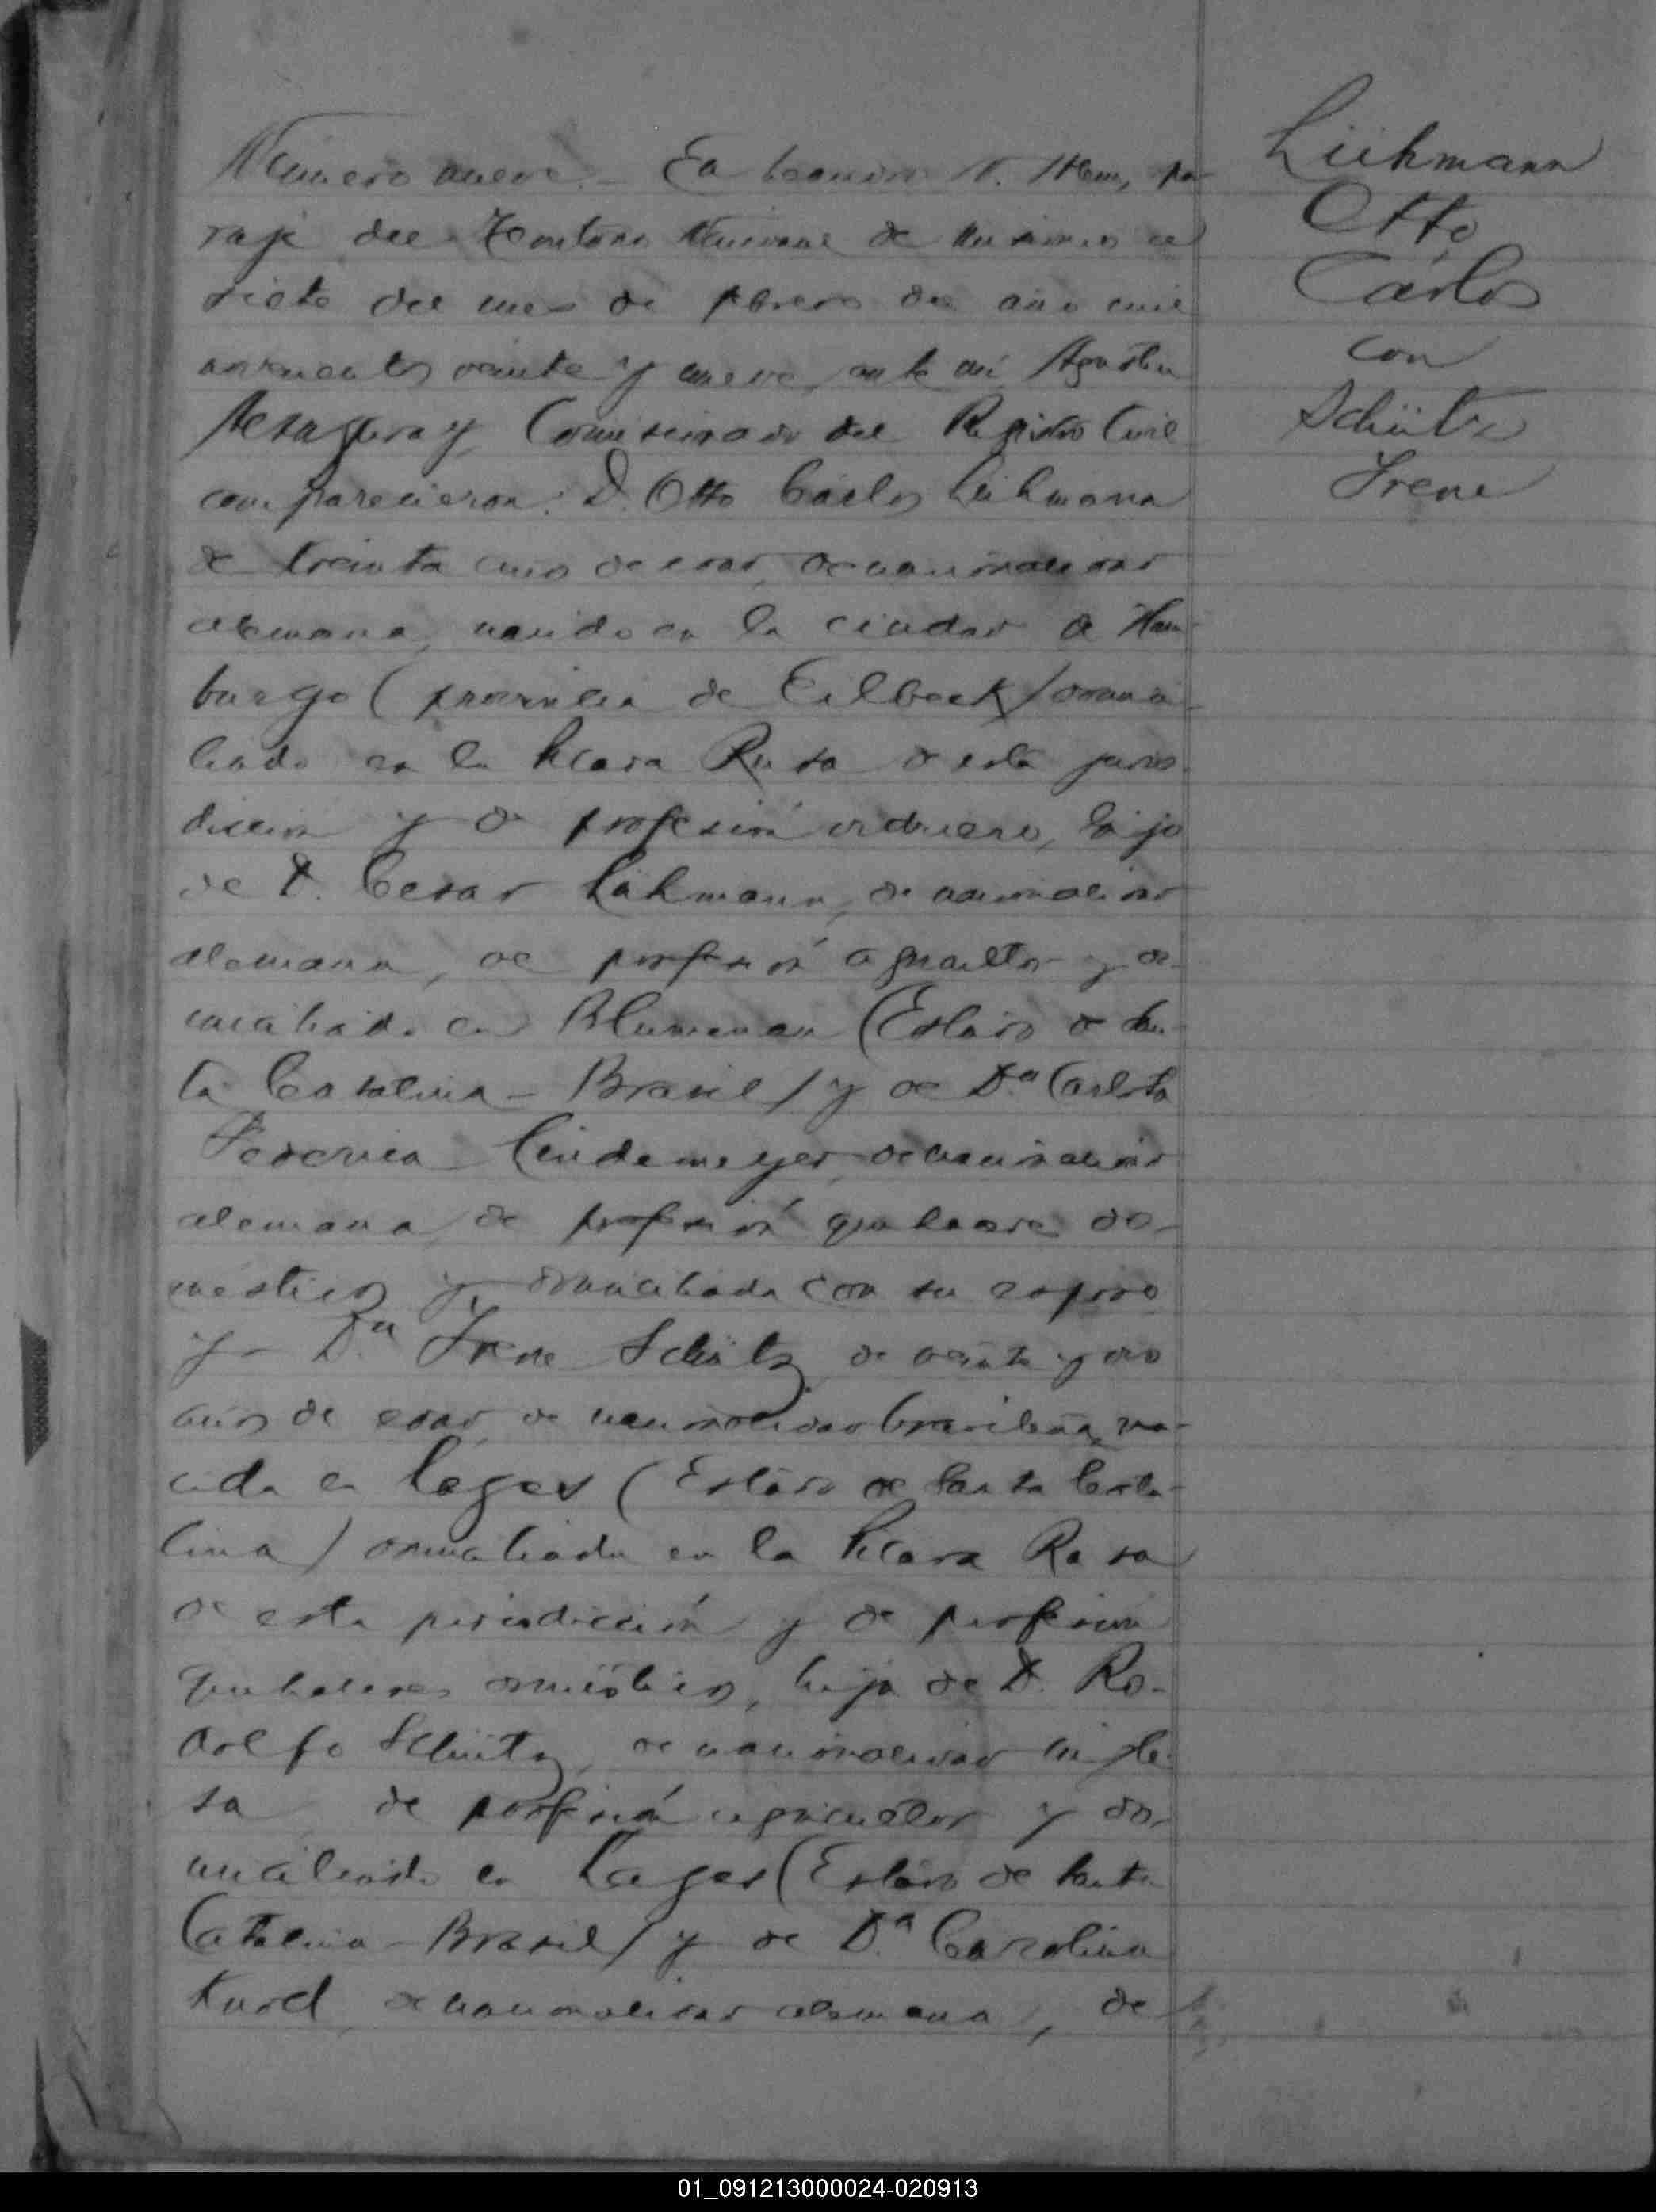 Número nueve.- En Leandro N. Alem, pa-
raje del Territorio Nacional de Misiones a
siete del mes de febrero del año mil
novecientos veinte y nueve, ante mí Agustin
Comisionado del Registro Civil
comparecieron: D. Otto Cárlos Lühmann
de treinta años de edad, de nacionalidad
alemana, nacido en la ciudad de Ham-
burgo (provincia de Eilbeck) domici-
liado en la Picada Rusa de esta juris-
diccion y de profesión vidriero, hijo
de D. Cesar Lühmann, de nacionalidad
alemana, de profesión agricultor y do-
miciliado en Blumenau (Estado de San-
ta Catalina - Brasil) y de Dª Carlota
Federica Lindemeyer, de nacionalidad
alemana, de profesión quehaceres do-
mésticos y domiciliada con su esposo
y Dª Irene Schütz, de veinte y dos
años de edad, de nacionalidad brasileña, na-
cida en Lages (Estado de Santa Cata-
lina) domiciliada en la Picada Rusa
de esta jurisdicción y de profesion
quehaceres domésticos, hija de D. Ro-
dolfo Schütz, de nacionalidad ingle-
sa, de profesión agricultor y do-
miciliado en Lages (Estado de Santa
Catalina - Brasil) y de Dª Carolina
de nacionalidad alemana, de
Lühmann
Otto
Cárlos
con
Schütz
Irene
01_091213000024-020913